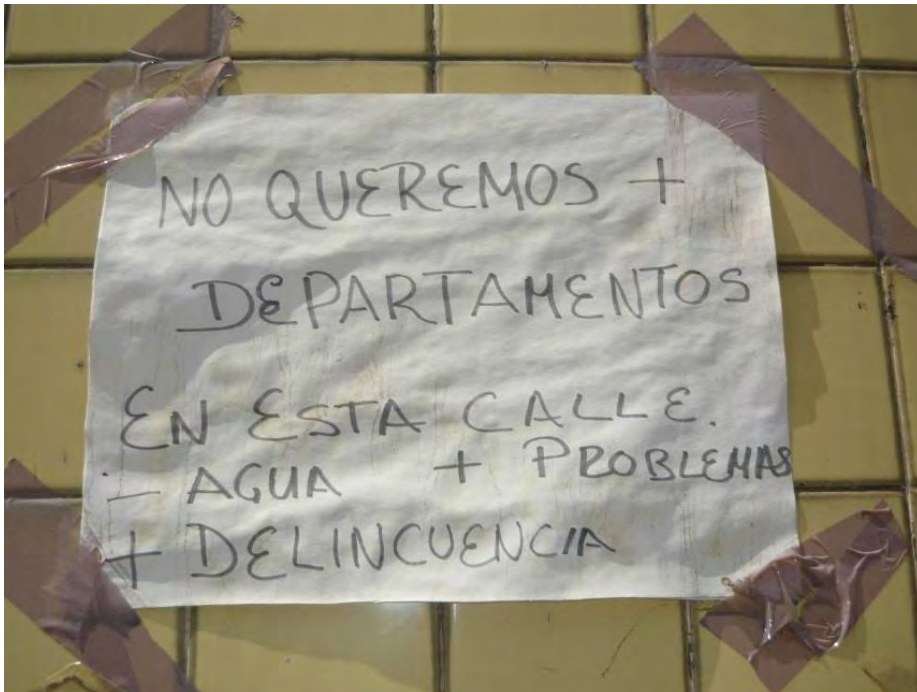 NO QUEREMOS +
DEPARTAMENTOS
EN ESTA CALLE.
- AGUA + PROBLEMAS
+ DELINCUENCIA